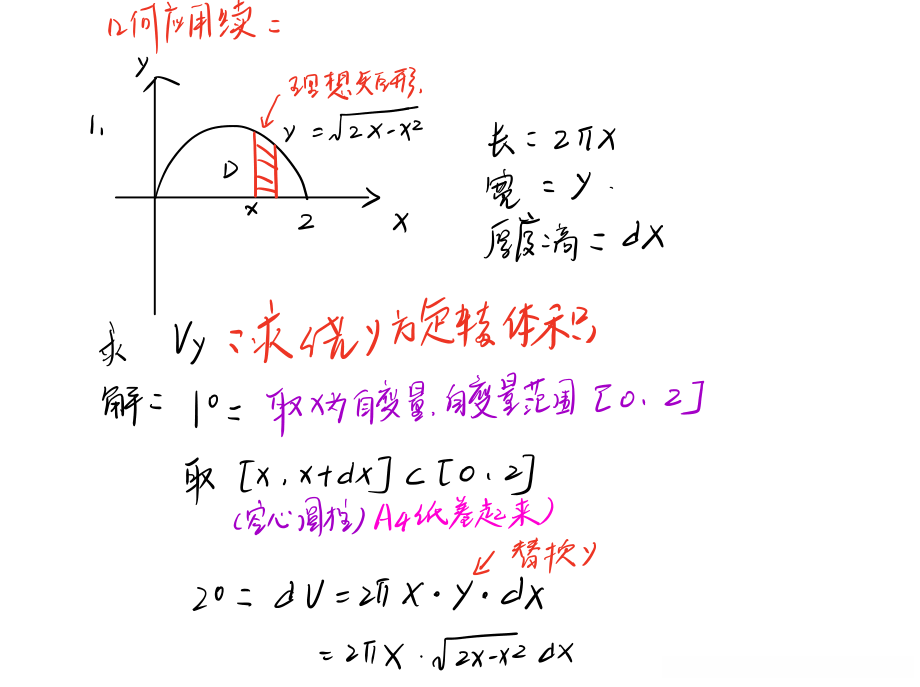 几何应用续:
y
理想矩形.
1.
y = √2x-x²
长 = 2πx
D
宽 = y.
x
2
x
厚度:高 = dx
求 Vy : 求绕y方定转体积
解: 1° : 取x为自变量.自变量范围 [0,2]
取 [x, x+dx] ⊂ [0,2]
(空心圆柱) A4纸卷起来)
替换y
2° : dV = 2πx·y·dx
= 2πx·√2x-x² dx